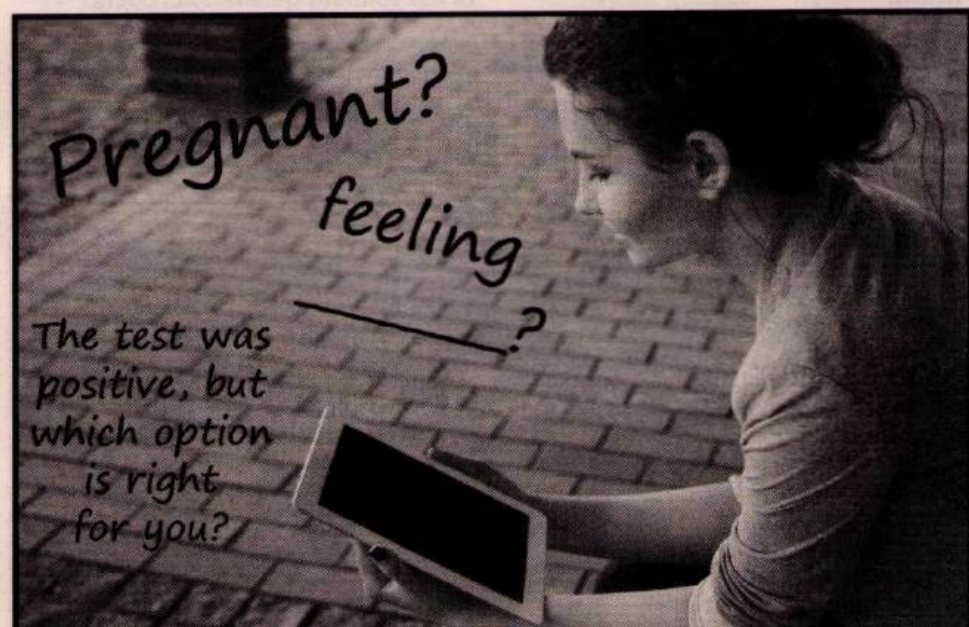 Pregnant?
feeling
________?
The test was
positive, but
which option
is right
for you?